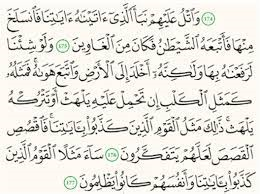 ١٧٤ وَٱتۡلُ عَلَيۡهِمۡ نَبَأَ ٱلَّذِيٓ ءَاتَيۡنَٰهُ ءَايَٰتِنَا فَٱنسَلَخَ
مِنۡهَا فَأَتۡبَعَهُ ٱلشَّيۡطَٰنُ فَكَانَ مِنَ ٱلۡغَاوِينَ ١٧٥ وَلَوۡ شِئۡنَا
لَرَفَعۡنَٰهُ بِهَا وَلَٰكِنَّهُۥٓ أَخۡلَدَ إِلَى ٱلۡأَرۡضِ وَٱتَّبَعَ هَوَىٰهُۚ فَمَثَلُهُۥ
كَمَثَلِ ٱلۡكَلۡبِ إِن تَحۡمِلۡ عَلَيۡهِ يَلۡهَثۡ أَوۡ تَتۡرُكۡهُ
يَلۡهَثۚ ذَّٰلِكَ مَثَلُ ٱلۡقَوۡمِ ٱلَّذِينَ كَذَّبُواْ بِـَٔايَٰتِنَاۚ فَٱقۡصُصِ
ٱلۡقَصَصَ لَعَلَّهُمۡ يَتَفَكَّرُونَ ١٧٦ سَآءَ مَثَلًا ٱلۡقَوۡمُ ٱلَّذِينَ
كَذَّبُواْ بِـَٔايَٰتِنَا وَأَنفُسَهُمۡ كَانُواْ يَظۡلِمُونَ ١٧٧